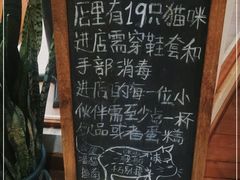 店里有19只猫咪
进店需穿鞋套和
手部消毒
进店的每一位小
伙伴需至少点一杯
饮品或者蛋糕